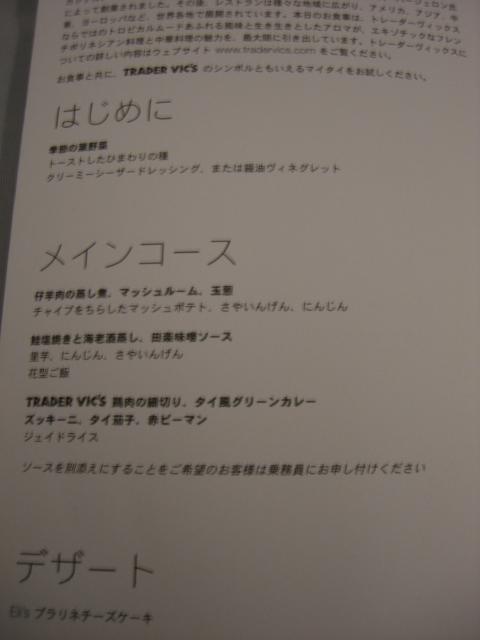 によって創業されました。その後、レストランは様々な地域に広がり、アメリカ、アジア、中
東、ヨーロッパなど、世界各地で展開されています。本日のお食事は、トレーダーヴィックス
ならではのトロピカルムードあふれる風味と生き生きとしたアロマが、エキゾチックなフレン
チポリネシアン料理と中華料理の魅力を、最大限に引き出しています。トレーダーヴィックスに
ついての詳しい内容はウェブサイト www.tradervics.com をご覧ください。
お食事と共に、TRADER VIC'S のシンボルともいえるマイタイをお試しください。
はじめに
季節の葉野菜
トーストしたひまわりの種
クリーミーシーザードレッシング、または醤油ヴィネグレット
メインコース
仔羊肉の蒸し煮、マッシュルーム、玉葱
チャイブをちらしたマッシュポテト、さやいんげん、にんじん
鮭塩焼きと海老酒蒸し、田楽味噌ソース
里芋、にんじん、さやいんげん
花型ご飯
TRADER VIC'S 鶏肉の細切り、タイ風グリーンカレー
ズッキーニ、タイ茄子、赤ピーマン
ジェイドライス
ソースを別添えにすることをご希望のお客様は乗務員にお申し付けください
デザート
Eli's プラリネチーズケーキ